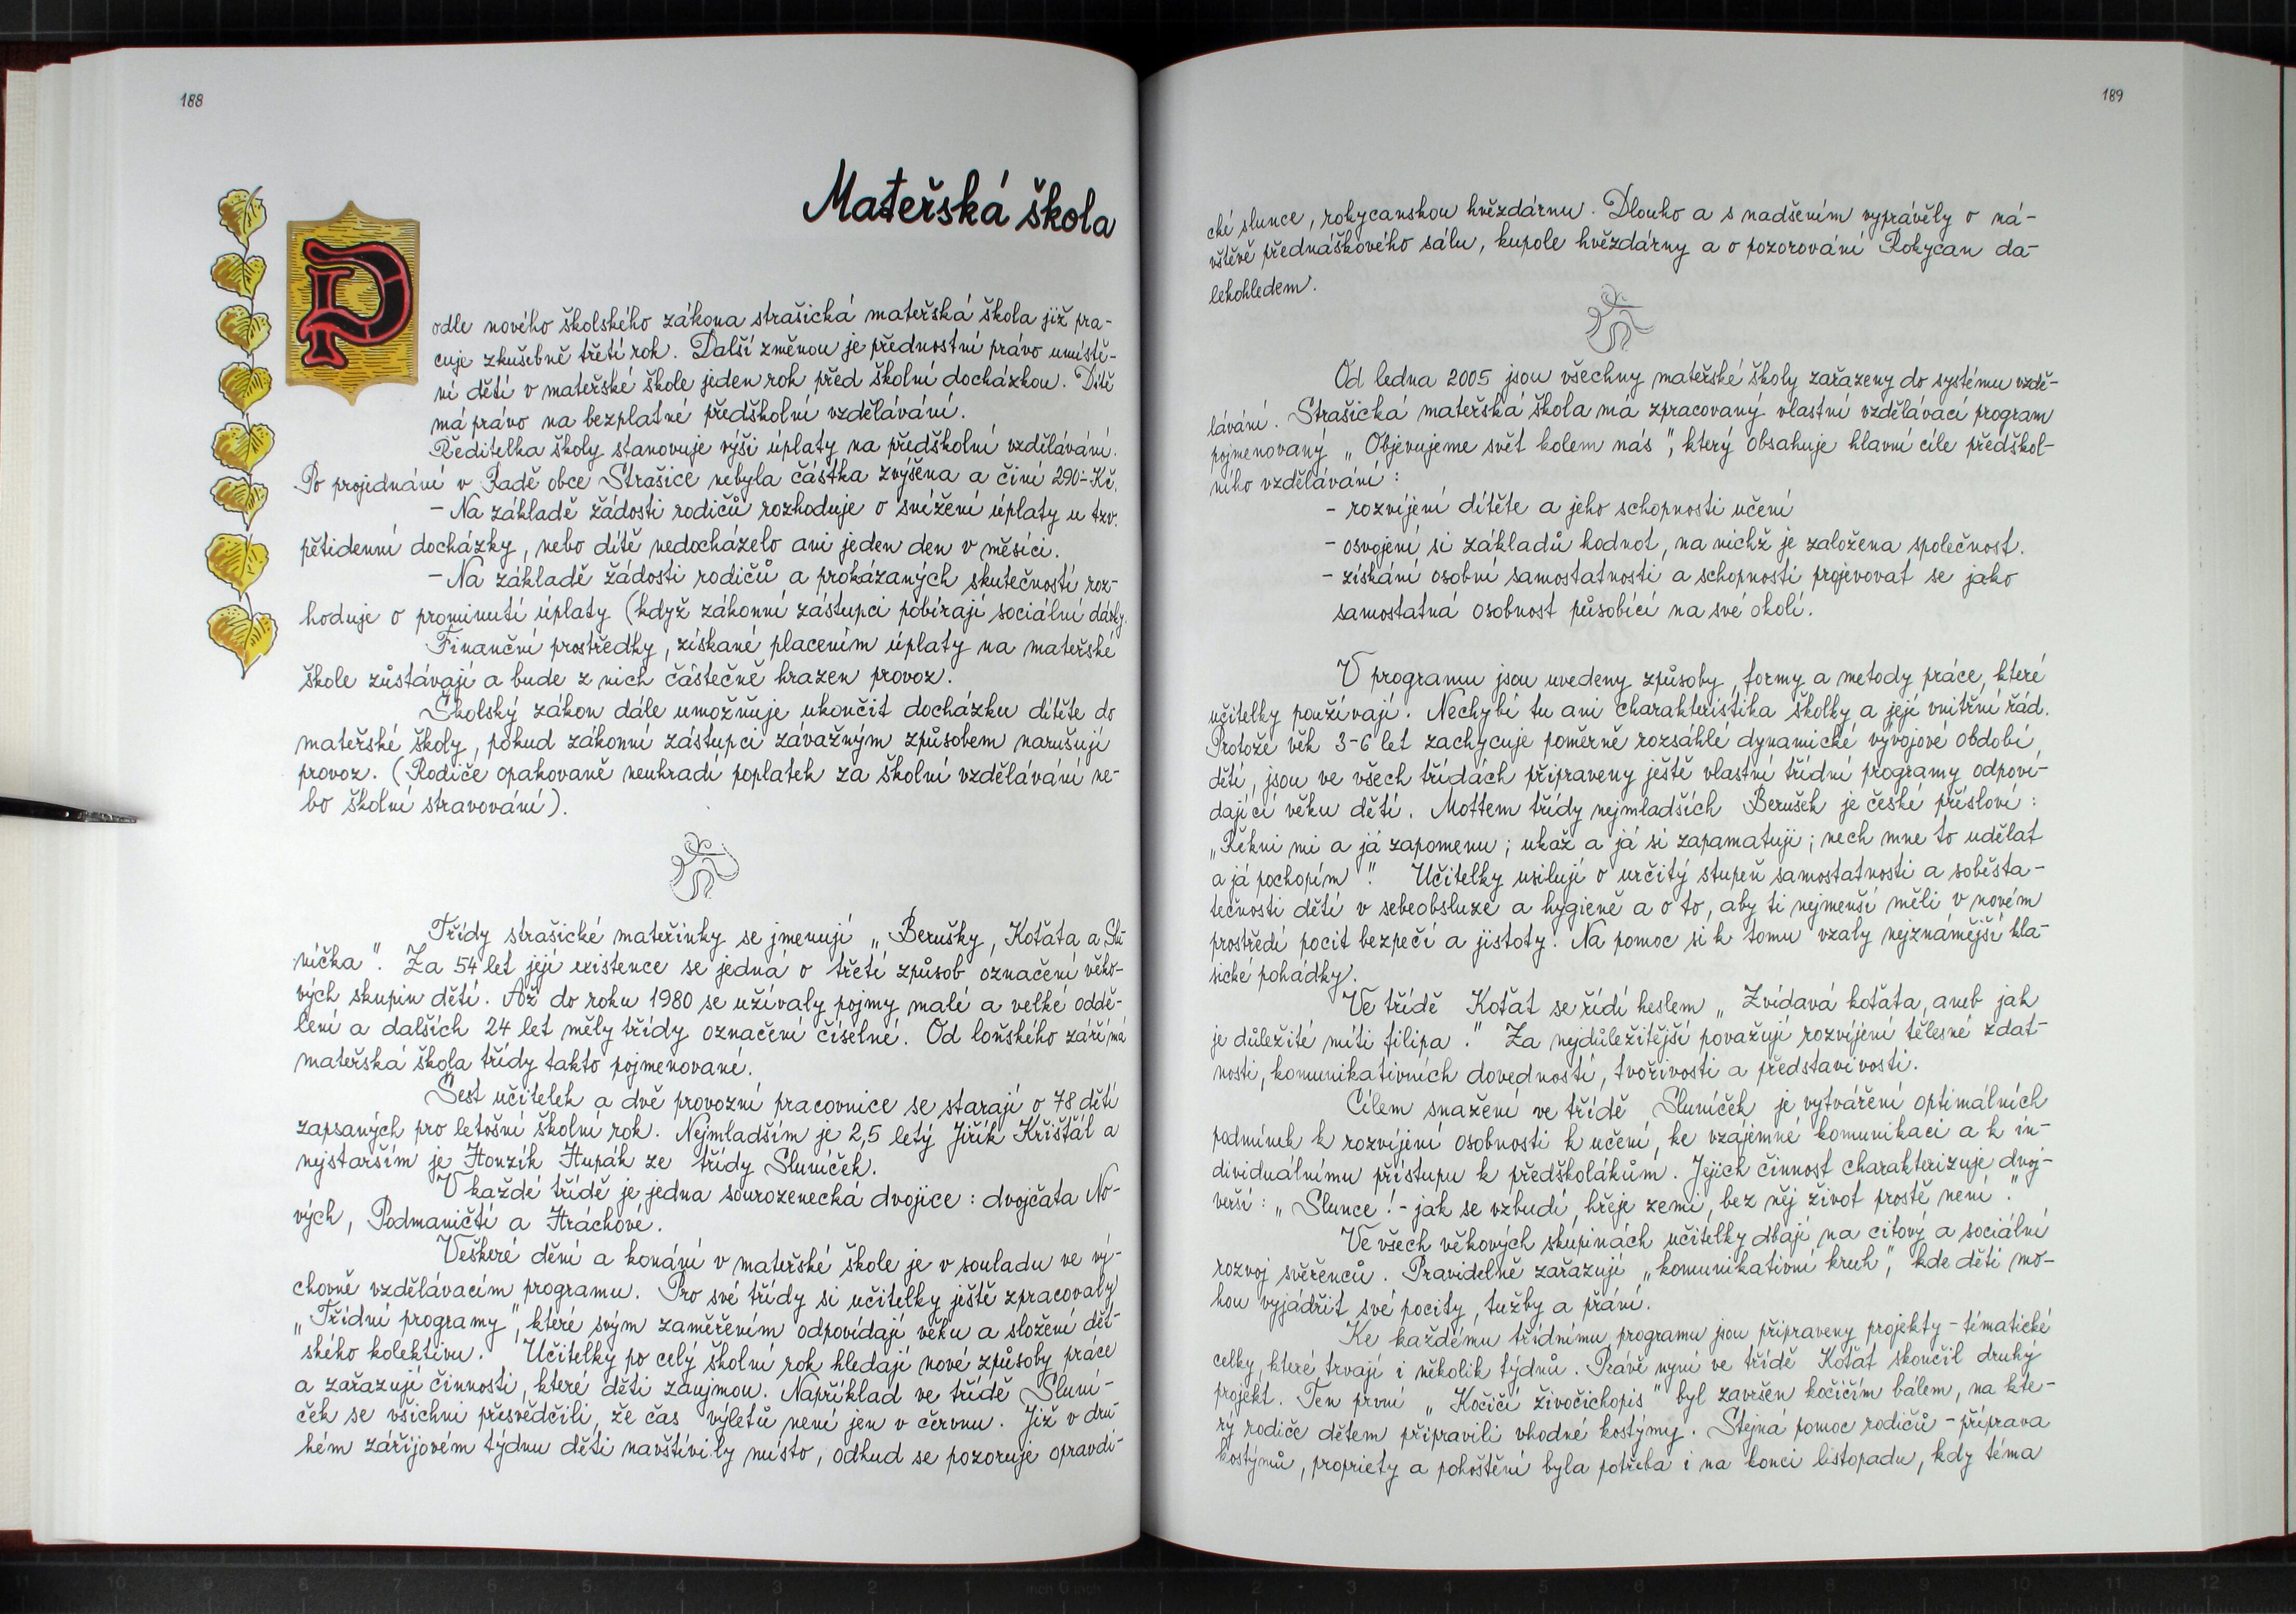 188
Mateřská škola
Podle nového školského zákona strašická mateřská škola již pra-
cuje zkušebně třetí rok. Další změnou je přednostní právo umístě-
ní dětí v mateřské škole jeden rok před školní docházkou. Dítě
má právo na bezplatné předškolní vzdělávání.
Ředitelka školy stanovuje výši úplaty na předškolní vzdělávání.
Po projednání v Radě obce Strašice nebyla částka zvýšena a činí 290-Kč.
- Na základě žádosti rodičů rozhoduje o snížení úplaty u tzv.
pětidenní docházky, nebo dítě nedocházelo ani jeden den v měsíci.
- Na základě žádosti rodičů a prokázaných skutečností roz-
hoduje o prominutí úplaty (když zákonní zástupci pobírají sociální dávky.
Finanční prostředky, získané placením úplaty na mateřské
škole zůstávají a bude z nich částečně hrazen provoz.
Školský zákon dále umožňuje ukončit docházku dítěte do
mateřské školy, pokud zákonní zástupci závažným způsobem narušují
provoz. (Rodiče opakovaně neuhradí poplatek za školní vzdělávání ne-
bo školní stravování).
Třídy strašické mateřinky se jmenují „Berušky, Koťata a Slu
níčka". Za 54 let její existence se jedná o třetí způsob označení věko-
vých skupin dětí. Až do roku 1980 se užívaly pojmy malé a velké oddě-
lení a dalších 24 let měly třídy označení číselné. Od loňského září má
mateřská škola třídy takto pojmenované.
Šest učitelek a dvě provozní pracovnice se starají o 78 dětí
zapsaných pro letošní školní rok. Nejmladším je 2,5 letý Jiřík Křišťál a
nejstarším je Honzík Hupák ze třídy Sluníček.
V každé třídě je jedna sourozenecká dvojice: dvojčata No-
vých, Podmaničtí a Hráchové.
Veškeré dění a konání v mateřské škole je v souladu ve vý-
chovně vzdělávacím programu. Pro své třídy si učitelky ještě zpracovaly
„Třídní programy", které svým zaměřením odpovídají věku a složení dět-
ského kolektivu. Učitelky po celý školní rok hledají nové způsoby práce
a zařazují činnosti, které děti zaujmou. Například ve třídě Sluní-
ček se všichni přesvědčili, že čas výletů není jen v červnu. Již v dru-
hém zářijovém týdnu děti navštívily místo, odkud se pozoruje opravdi-
189
cké slunce, rokycanskou hvězdárnu. Dlouho a s nadšením vyprávěly o ná-
vštěvě přednáškového sálu, kupole hvězdárny a o pozorování Rokycan da-
lekohledem.
Od ledna 2005 jsou všechny mateřské školy zařazeny do systému vzdě-
lávání. Strašická mateřská škola má zpracovaný vlastní vzdělávací program
pojmenovaný „Objevujeme svět kolem nás", který obsahuje hlavní cíle předškol-
ního vzdělávání:
- rozvíjení dítěte a jeho schopnosti učení
- osvojení si základů hodnot, na nichž je založena společnost.
- získání osobní samostatnosti a schopnosti projevovat se jako
samostatná osobnost působící na své okolí.
V programu jsou uvedeny způsoby, formy a metody práce, které
učitelky používají. Nechybí tu ani charakteristika školky a její vnitřní řád.
Protože věk 3-6 let zachycuje poměrně rozsáhlé dynamické vývojové období
dětí, jsou ve všech třídách připraveny ještě vlastní třídní programy odpoví-
dající věku dětí. Mottem třídy nejmladších Berušek je české přísloví:
„Řekni mi a já zapomenu; ukaž a já si zapamatuji; nech mne to udělat
a já pochopím". Učitelky usilují o určitý stupeň samostatnosti a soběsta-
tečnosti dětí v sebeobsluze a hygieně a o to, aby ti nejmenší měli v novém
prostředí pocit bezpečí a jistoty. Na pomoc si k tomu vzaly nejznámější kla-
sické pohádky.
Ve třídě Koťat se řídí heslem „Zvídavá koťata, aneb jak
je důležité míti filipa." Za nejdůležitější považují rozvíjení tělesné zdat-
nosti, komunikativních dovedností, tvořivosti a představivosti.
Cílem snažení ve třídě Sluníček je vytváření optimálních
podmínek k rozvíjení osobnosti k učení, ke vzájemné komunikaci a k in-
dividuálnímu přístupu k předškolákům. Jejich činnost charakterizuje dvoj-
verší: „Slunce! - jak se vzbudí, hřeje zemi, bez něj život prostě není."
Ve všech věkových skupinách učitelky dbají na citový a sociální
rozvoj svěřenců. Pravidelně zařazují „komunikativní kruh", kde děti mo-
hou vyjádřit své pocity, tužby a přání.
Ke každému třídnímu programu jsou připraveny projekty - tématické
celky, které trvají i několik týdnů. Právě nyní ve třídě Koťat skončil druhý
projekt. Ten první „Kočičí živočichopis" byl završen kočičím bálem, na kte-
rý rodiče dětem připravili vhodné kostýmy. Stejná pomoc rodičů - příprava
kostýmů, propriety a pohoštění byla potřeba i na konci listopadu, kdy téma